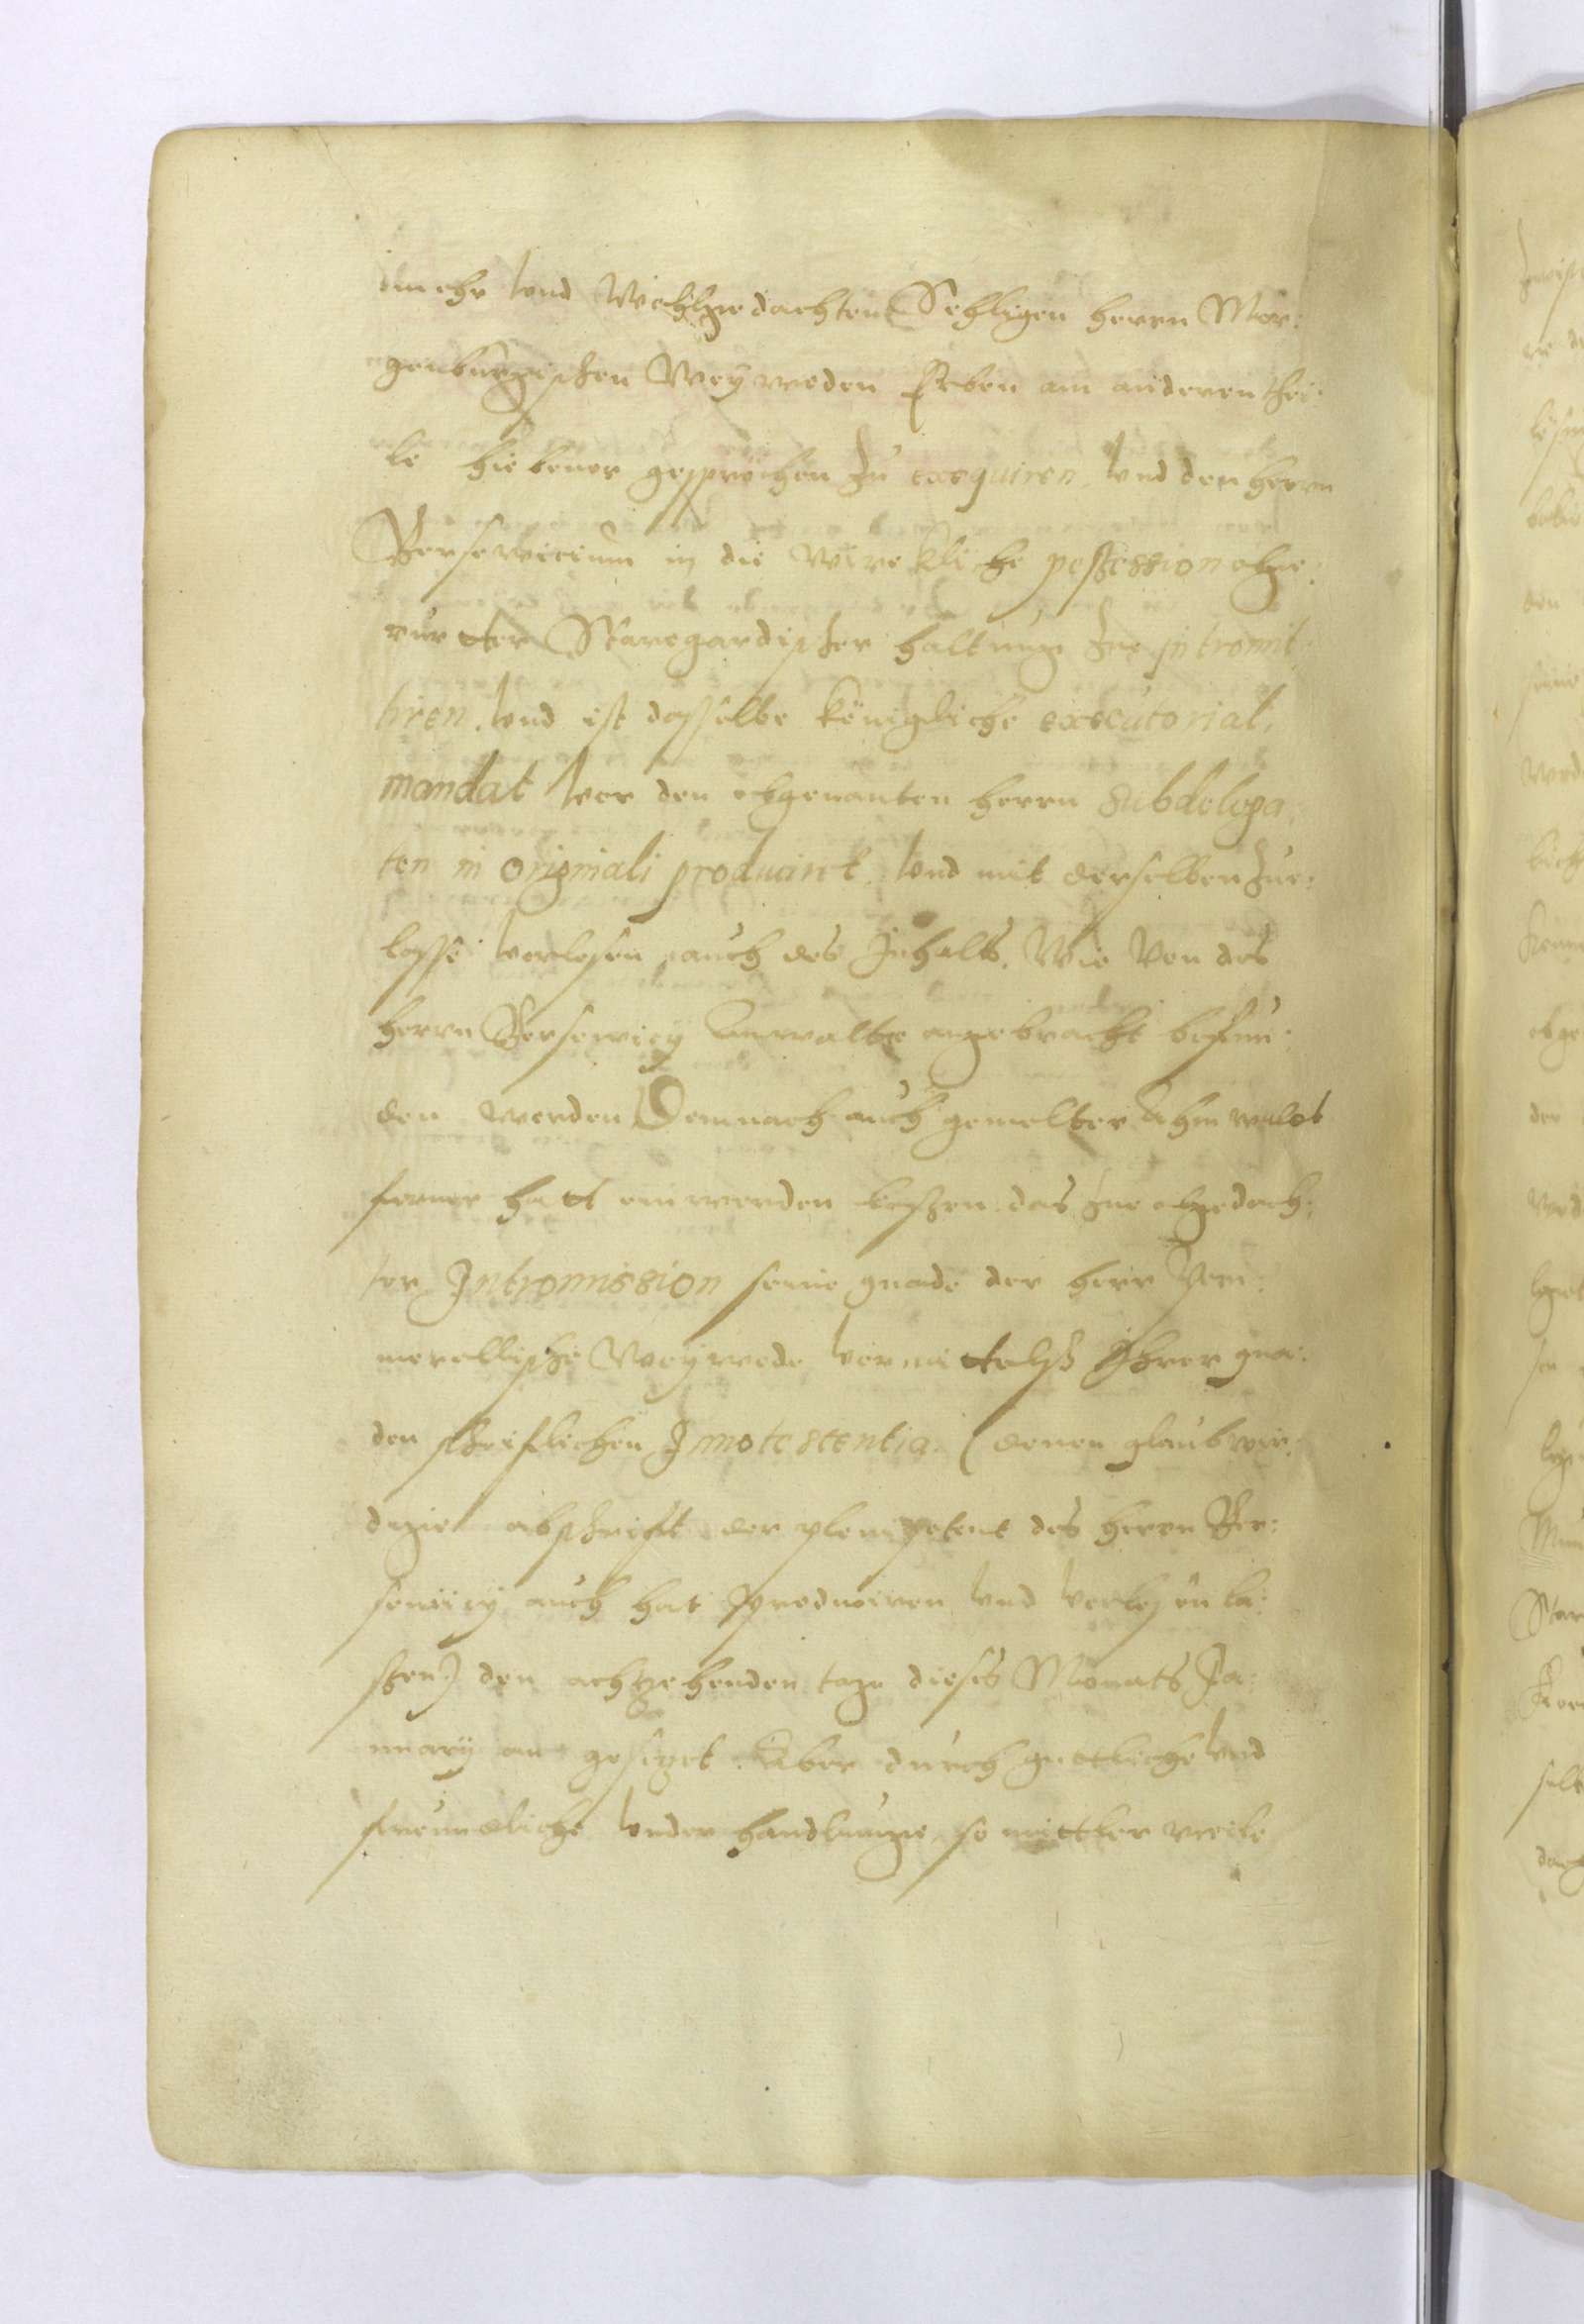 im ehr vnd Wohlgedachten Sehligen herrn Mar:
genburgischen Weywoden Erben am anderen thei:
le hiebeuor gesprochen zu exequiren, vnd den herrn
Bersewicium in die wirckliche possession obge:
rurter Staregardischer haltung zue intromit
tiren. Vnd ist dasselbe Königliche executorial,
mandat vor den obgenanten herrn subdelega
ten in originali producirt, vnd mit derselben zue:
lasse verlesen, auch des Inhalts, Wie Von des
herrn Bersewicy Anwalte angebracht befun:
den worden, Demnach auch gemelter Ahnwaldt
ferner hatt einwenden laßen das zue obgedach:
ter Intromission seine gnade der herr Pom:
merellische Weywode vermittelß Ihrer gna:
den schriftlichen Innotestentia. (denen glaubwir:
digie abschrifft der plenipotent des herrn Ber:
sewicy auch hat produciren vnd verlesen la:
ßen) den achtzehenden tage dieses Monats Ja:
nuary angesezet. Aber durch guetliche vnd
freundliche vnderhandlunge, so mittler weile